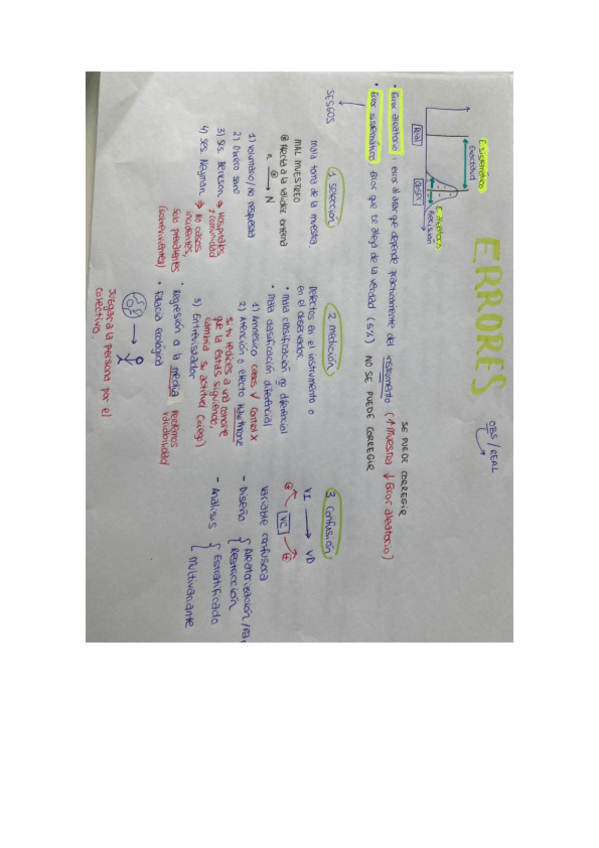 ERRORES
OBS / REAL
E. sistemático
Exactitud
E. aleatorio
Precisión
Real
OBSER
• Error aleatorio: error al azar que depende prácticamente del instrumento (↑ Muestra ↓ Error aleatorio)
SE PUEDE CORREGIR
• Error sistemático: Error que te aleja de la verdad (5%) NO SE PUEDE CORREGIR
SESGOS
1 selección
Mala toma de la muestra.
MAL MUESTREO
Afecta a la validez externa
n → N
1) Voluntario / no respuesta
2) Obrero sano
3) Ses. Berckson → Hospitales
≠ comunidad
4) Ses. Neyman → No casos
incidentes,
Solo prevalentes
(sobrevivientes)
2 medición
Defectos en el instrumento o
en el observador.
• Mala clasificación no diferencial
• Mala clasificación diferencial
1) Amnésico casos √ Control X
2) Atención o efecto Hawthorne
si tú le dices a una
que la estás siguiendo,
cambia su actitud (ciego)
3) Entrevistador
• Regresión a la media
variabilidad
• Falacia ecológica
Juzgar a la persona por el
colectivo.
3 Confusión
VI → VD
VC
Variable confusora
- Diseño { Aleatorización /
Restricción
- Análisis { Estratificado
Multivariante